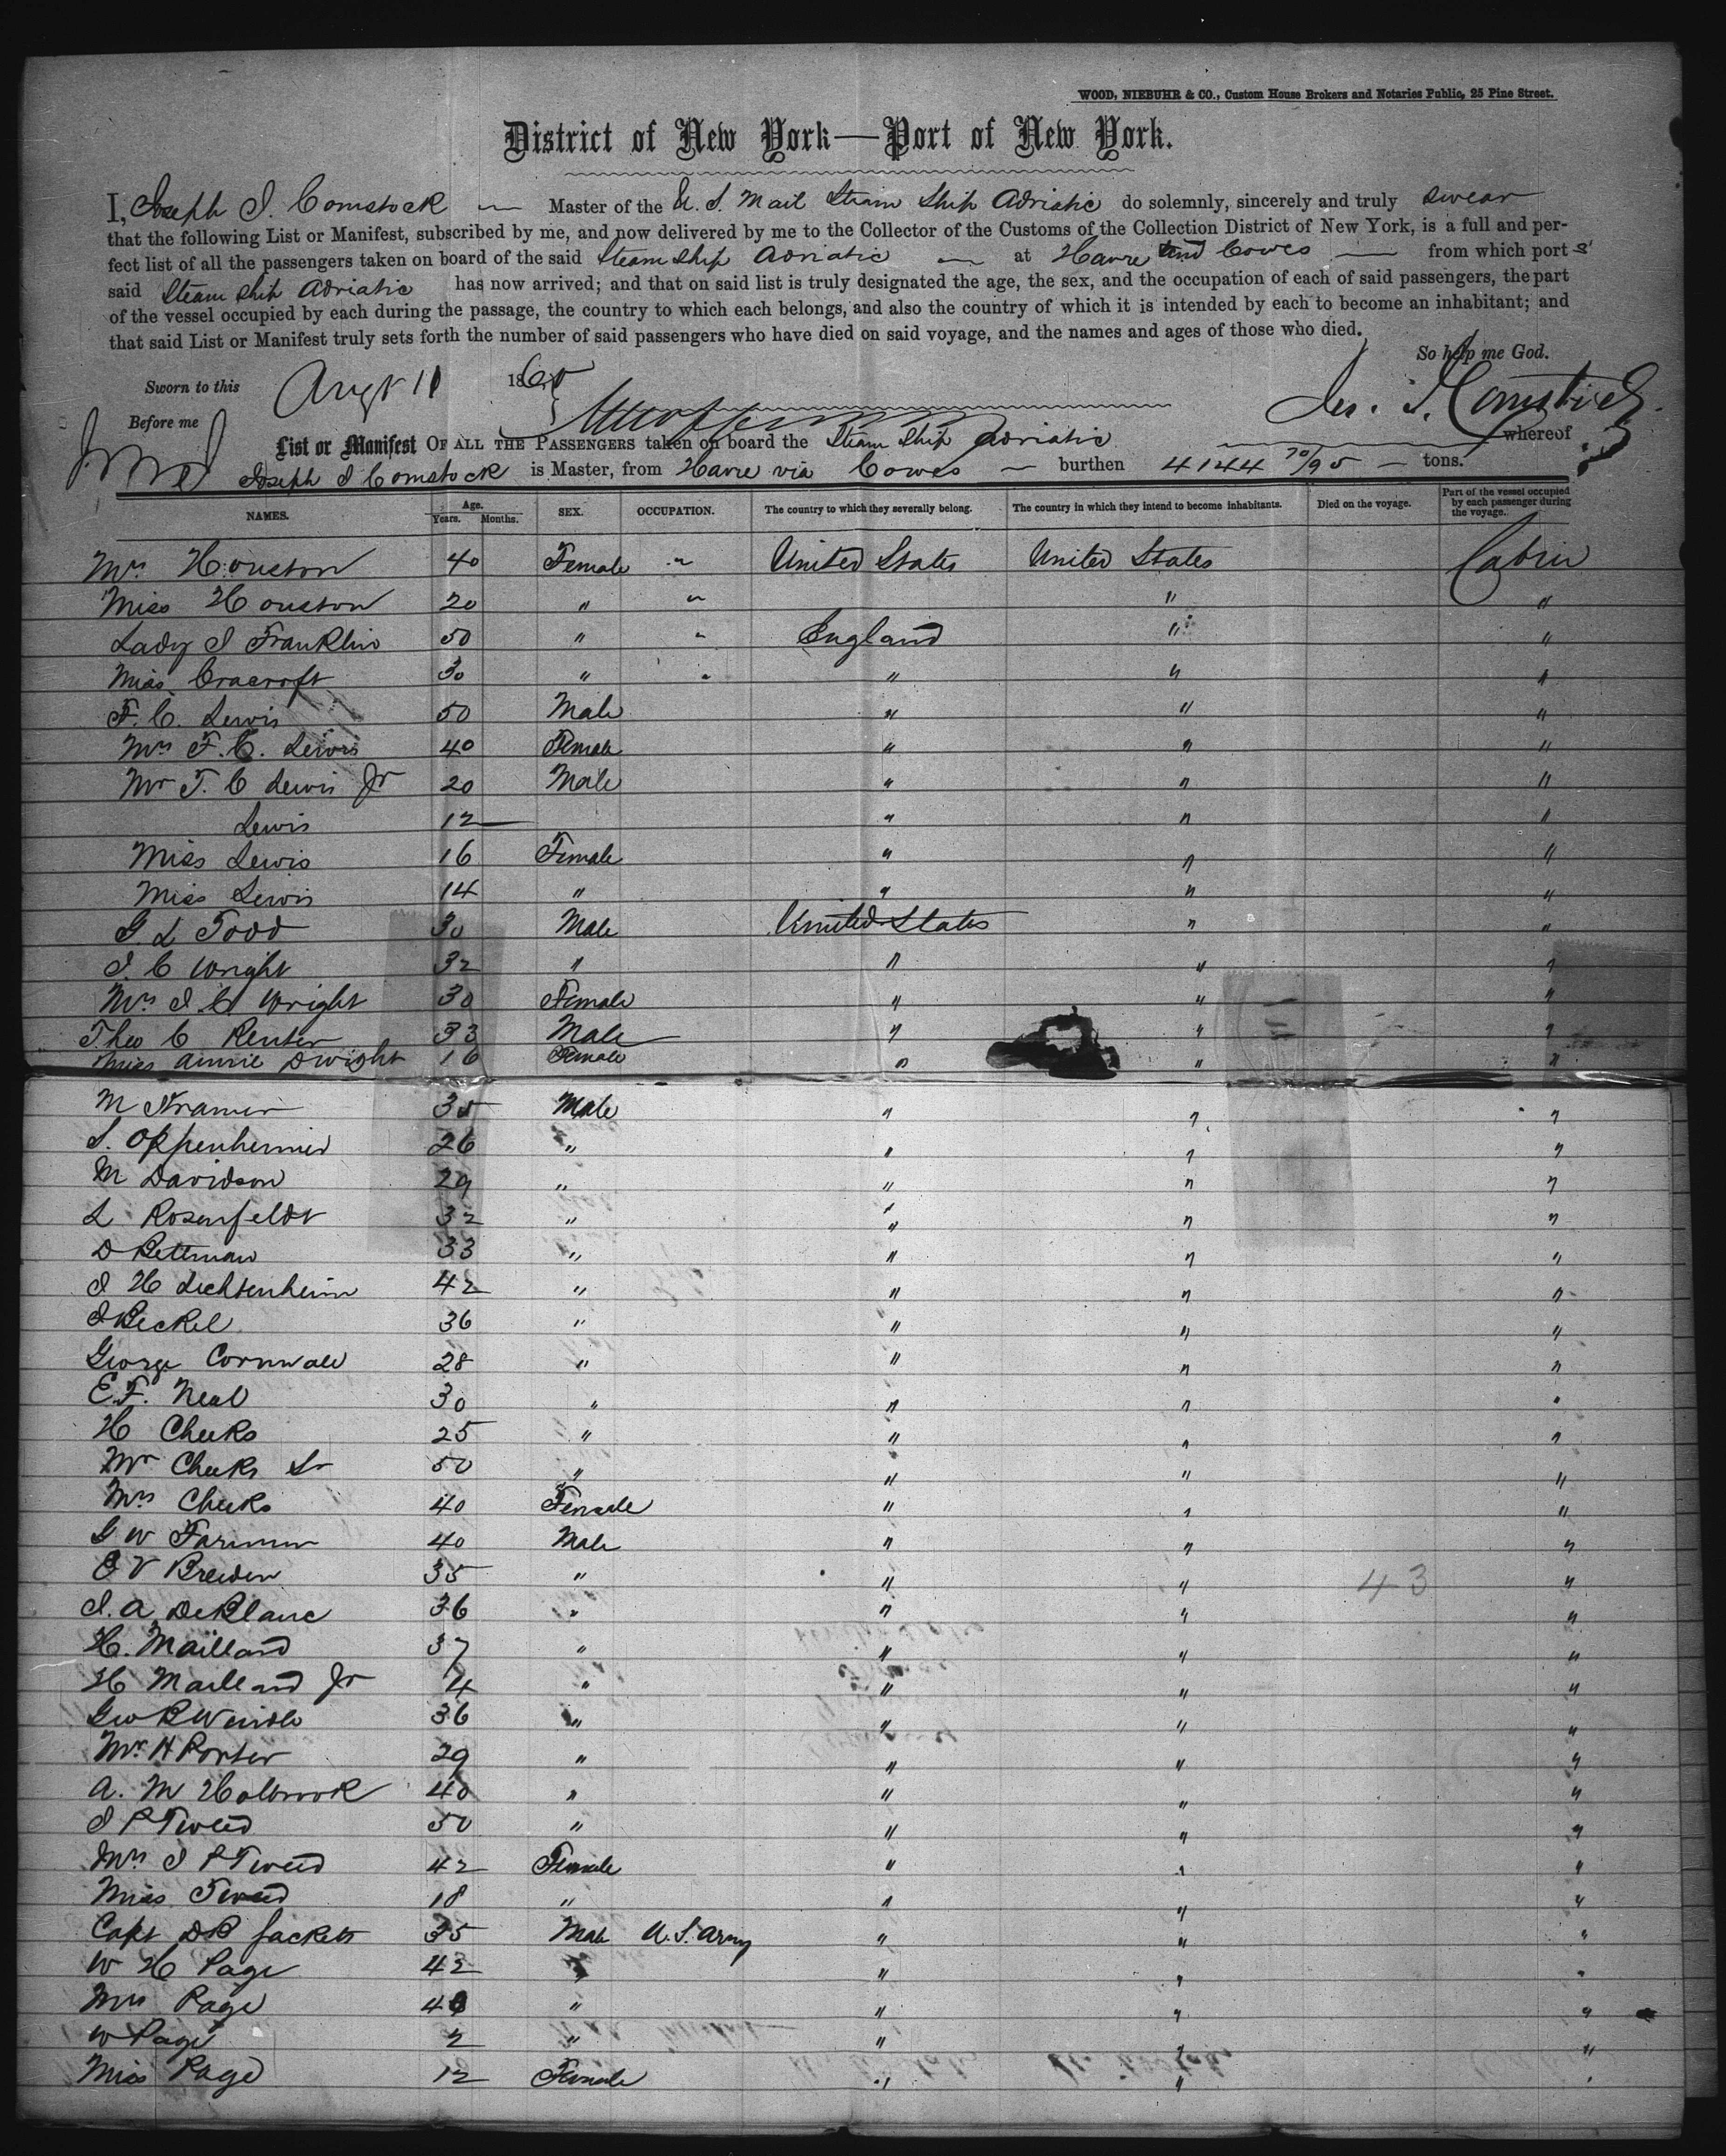 WOOD, NIEBUHR & CO., Custom House Brokers and Notaries Public, 25 Pine Street.
District of New York—Port of New York.
I, Joseph J. Comstock — Master of the U. S. Mail Steam Ship Adriatic do solemnly, sincerely and truly swear
that the following List or Manifest, subscribed by me, and now delivered by me to the Collector of the Customs of the Collection District of New York, is a full and per-
fect list of all the passengers taken on board of the said Steam Ship Adriatic — at Havre and Cowes — from which port s
said Steam Ship Adriatic has now arrived; and that on said list is truly designated the age, the sex, and the occupation of each of said passengers, the part
of the vessel occupied by each during the passage, the country to which each belongs, and also the country of which it is intended by each to become an inhabitant; and
that said List or Manifest truly sets forth the number of said passengers who have died on said voyage, and the names and ages of those who died.
So help me God.
Sworn to this Augt 11 1860
Jos. J. Comstock
Before me
List or Manifest OF ALL THE PASSENGERS taken on board the Steam Ship Adriatic whereof
Joseph J Comstock is Master, from Havre via Cowes — burthen 4144 70/95 — tons.
NAMES. Age. Years. Months. SEX. OCCUPATION. The country to which they severally belong. The country in which they intend to become inhabitants. Died on the voyage. Part of the vessel occupied by each passenger during the voyage.
Mrs Houston 40 Female " United States United States Cabin
Miss Houston 20 " " " "
Lady J Franklin 50 " " England " "
Miss Cracroft 30 " " " " "
F. C. Lewis 50 Male " " "
Mrs F. C. Lewis 40 Female " " "
Mr T. C Lewis Jr 20 Male " " "
Lewis 12 — " " "
Miss Lewis 16 Female " " "
Miss Lewis 14 " " " "
G. L Todd 30 Male United States " "
J. C Wright 32 " " " "
Mrs J. C Wright 30 Female " " "
Theo C Renter 33 Male " " "
Miss Annie Dwight 16 Female " " "
M Kramer 35 Male " " "
S. Oppenheimer 26 " " " "
M Davidson 29 " " " "
L Rosenfeldt 32 " " " "
D Rettman 33 " " " "
J H Lichtenheim 42 " " " "
J Beckel 36 " " " "
George Cornwall 28 " " " "
E. F. Neal 30 " " " "
H Cheeks 25 " " " "
Mr Cheeks Sr 50 " " " "
Mrs Cheeks 40 Female " " "
G W Farmer 40 Male " " "
E V Breiden 35 " " " 43 "
J. A DeBlanc 36 " " " "
H. Mailland 37 " " " "
H Mailland Jr 4 " " " "
Geo R Weirdle 36 " " " "
Mr H Porter 29 " " " "
A. M Holbrook 40 " " " "
J P Tweed 50 " " " "
Mrs J P Tweed 42 Female " " "
Miss Tweed 18 " " " "
Capt DB Sacketts 35 Male U. S. Army " " "
W H Page 42 " " " "
Mrs Page 40 " " " "
W Page 2 " " " "
Miss Page 12 Female " " "